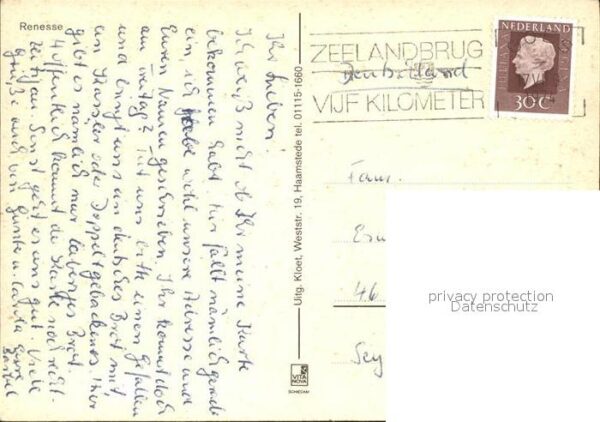 Renesse
Ihr Lieben.
Ich weiß nicht ob Ihr meine Karte
bekommen habt. Mir fällt nämlich gerade
ein, ich habe wohl unsere Adresse und
Euren Namen geschrieben. Ihr kommt doch
am Freitag? Tut uns bitte einen Gefallen
und bringt uns ein deutsches Brot mit,
ein Kasseler oder Doppeltgebackenes. Hier
gibt es nämlich nur labriges Brot
Hoffentlich kommt die Karte noch recht-
zeitig an. Sonst geht es uns gut. Viele
Grüße auch von Günter u. Carola Eure
Bärbel
Uitg. Kloet, Weststr. 19, Haamstede tel. 01115-1660
VITA
NOVA
SCHIEDAM
ZEELANDBRUG
VIJF KILOMETER
Deutschland
NEDERLAND
JULIANA REGINA
30 c
Fam.
46
privacy protection
Datenschutz